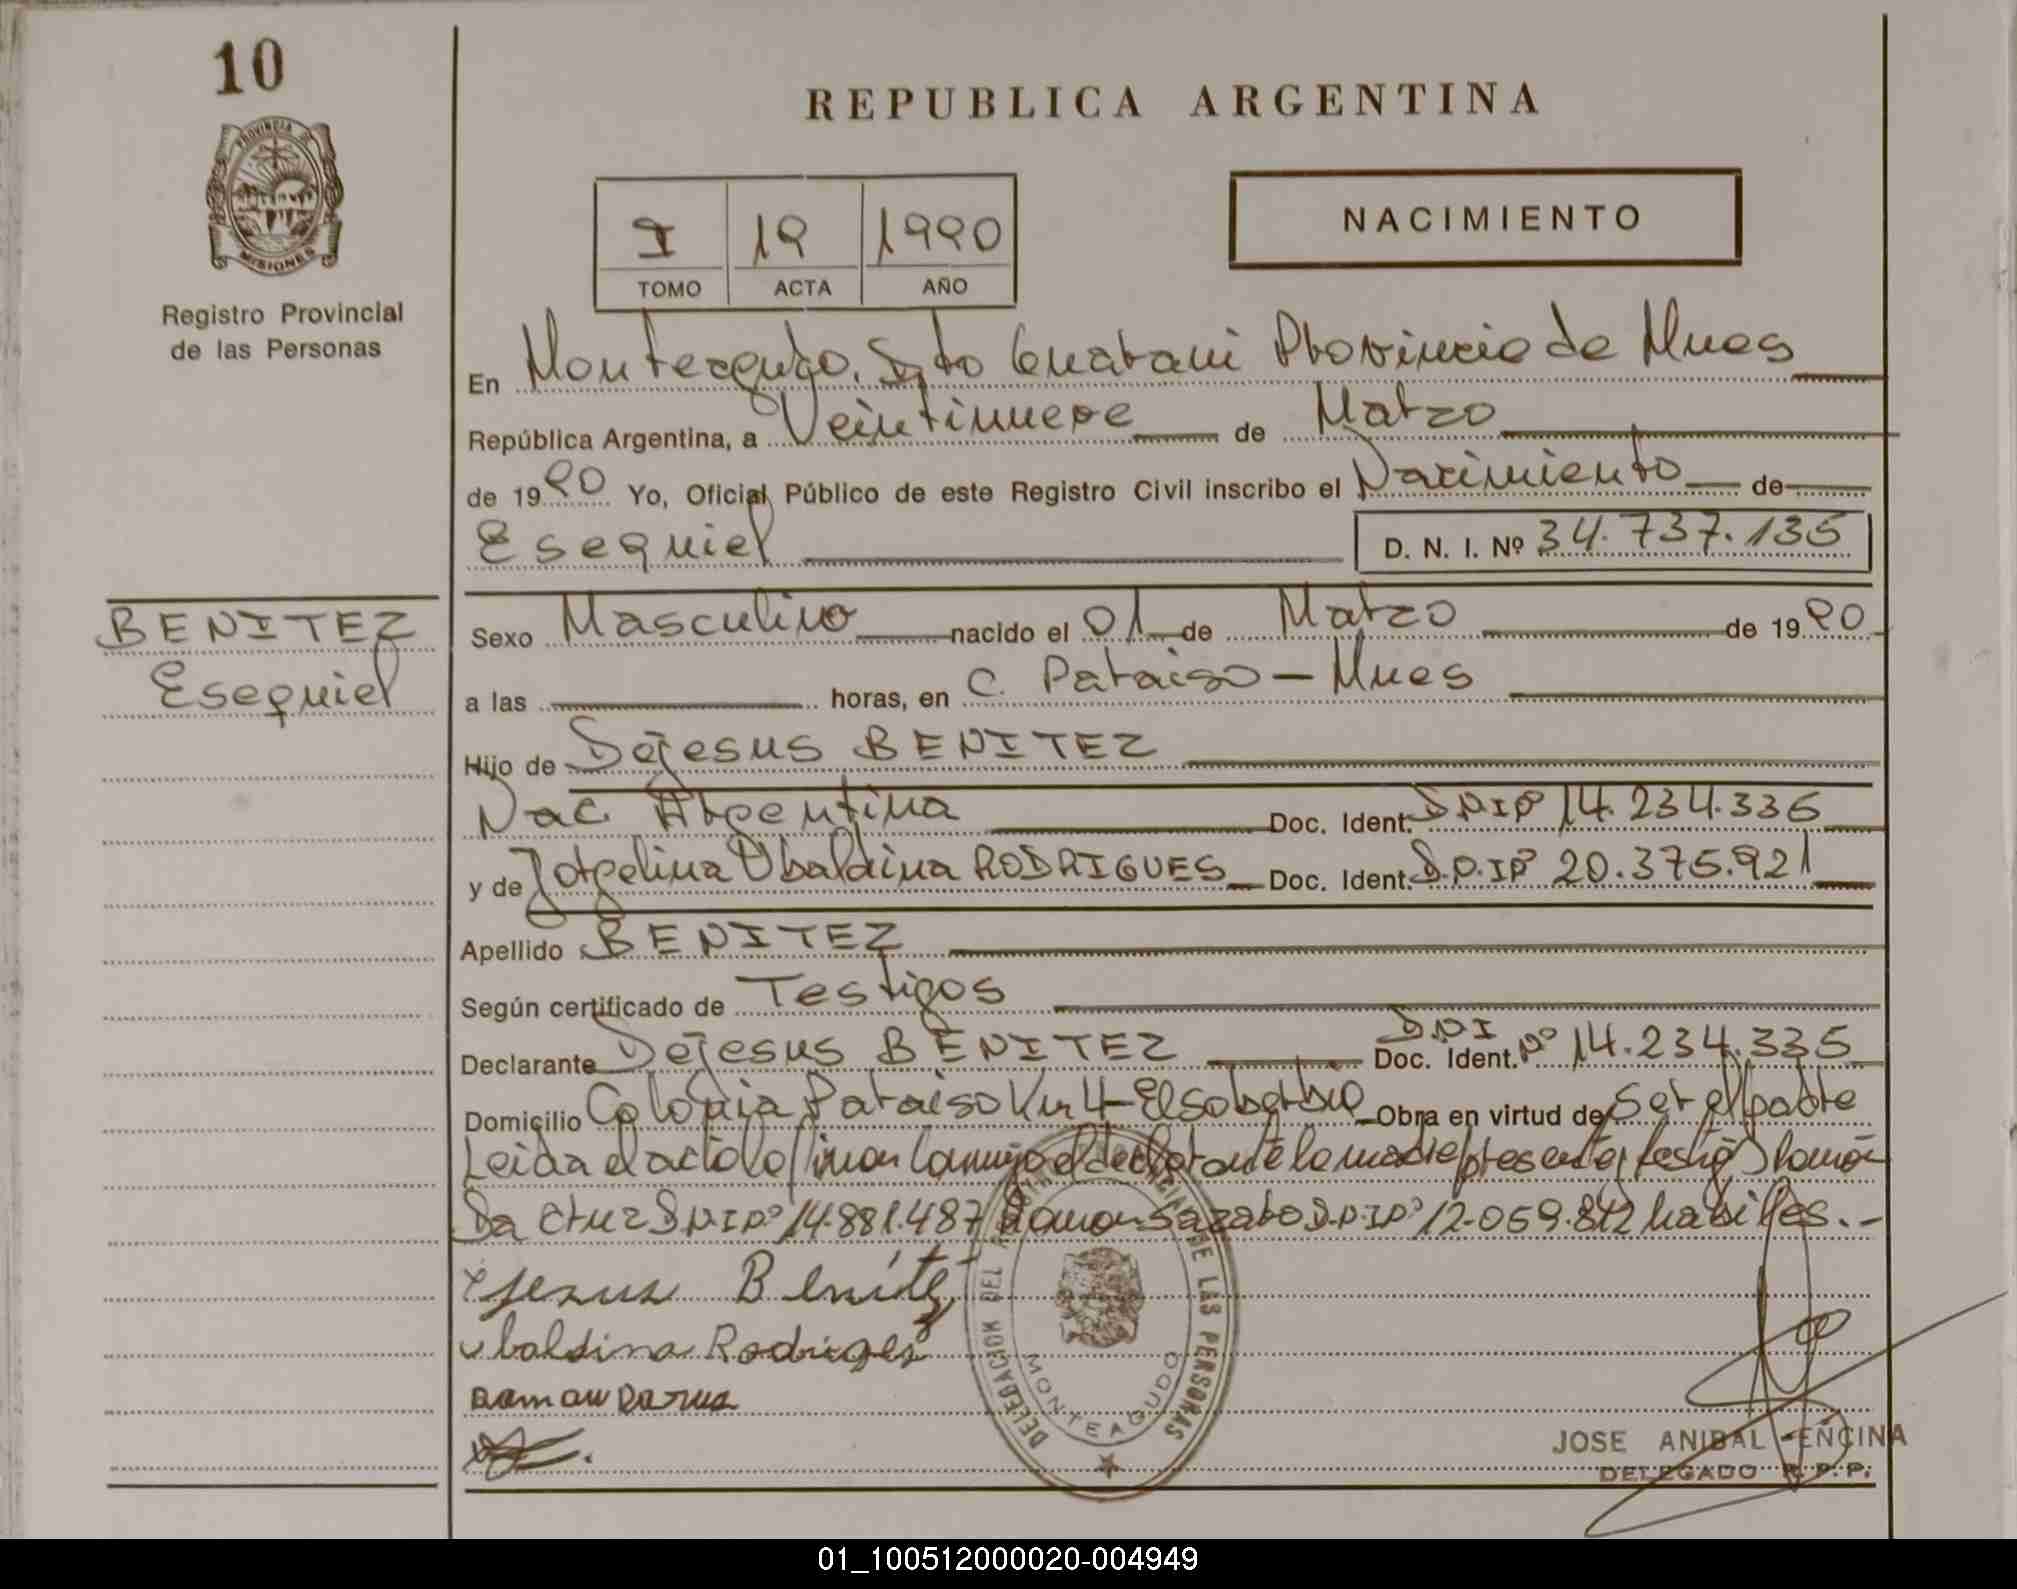 10
REPUBLICA ARGENTINA
PROVINCIA DE
MISIONES
Registro Provincial
de las Personas
I 19 1990
TOMO ACTA AÑO
NACIMIENTO
En Monteagudo, Dpto Guarani Provincia de Mnes
República Argentina, a Veintinueve de Marzo
de 1990 Yo, Oficial Público de este Registro Civil inscribo el Nacimiento de
Esequiel D. N. I. Nº 34.737.135
BENITEZ
Esequiel
Sexo Masculino nacido el 01 de Marzo de 1990
a las horas, en C. Paraiso - Mnes
Hijo de Dejesus BENITEZ
Nac. Argentina Doc. Ident. DNINº 14.234.335
y de Jorgelina Ubaldina RODRIGUES Doc. Ident. D.N.INº 20.375.921
Apellido BENITEZ
Según certificado de Testigos
Declarante Dejesus BENITEZ Doc. Ident. DNI Nº 14.234.335
Domicilio Colonia Paraiso Km 4 - El Soberbio Obra en virtud de Ser el padre
Leida el acta la firman conmigo el declarante la madre presente, testigos Ramón
Da Cruz D.N.I.Nº 14.881.487 Ramon D.N.INº 12.059.842 habiles.-
Jesus Benítez
Ubaldina Rodrigues
DELEGACION DEL DE LAS PERSONAS
MONTEAGUDO
JOSE ANIBAL ENCINA
DELEGADO R. P. P.
01_100512000020-004949